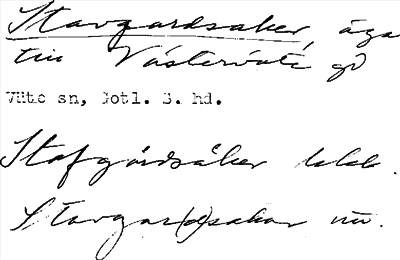 Stavgardsaker, äga
till Västerväte gd
Väte sn, Gotl. S. hd.
Stafgårdsåker
Stavgar(d)sakar